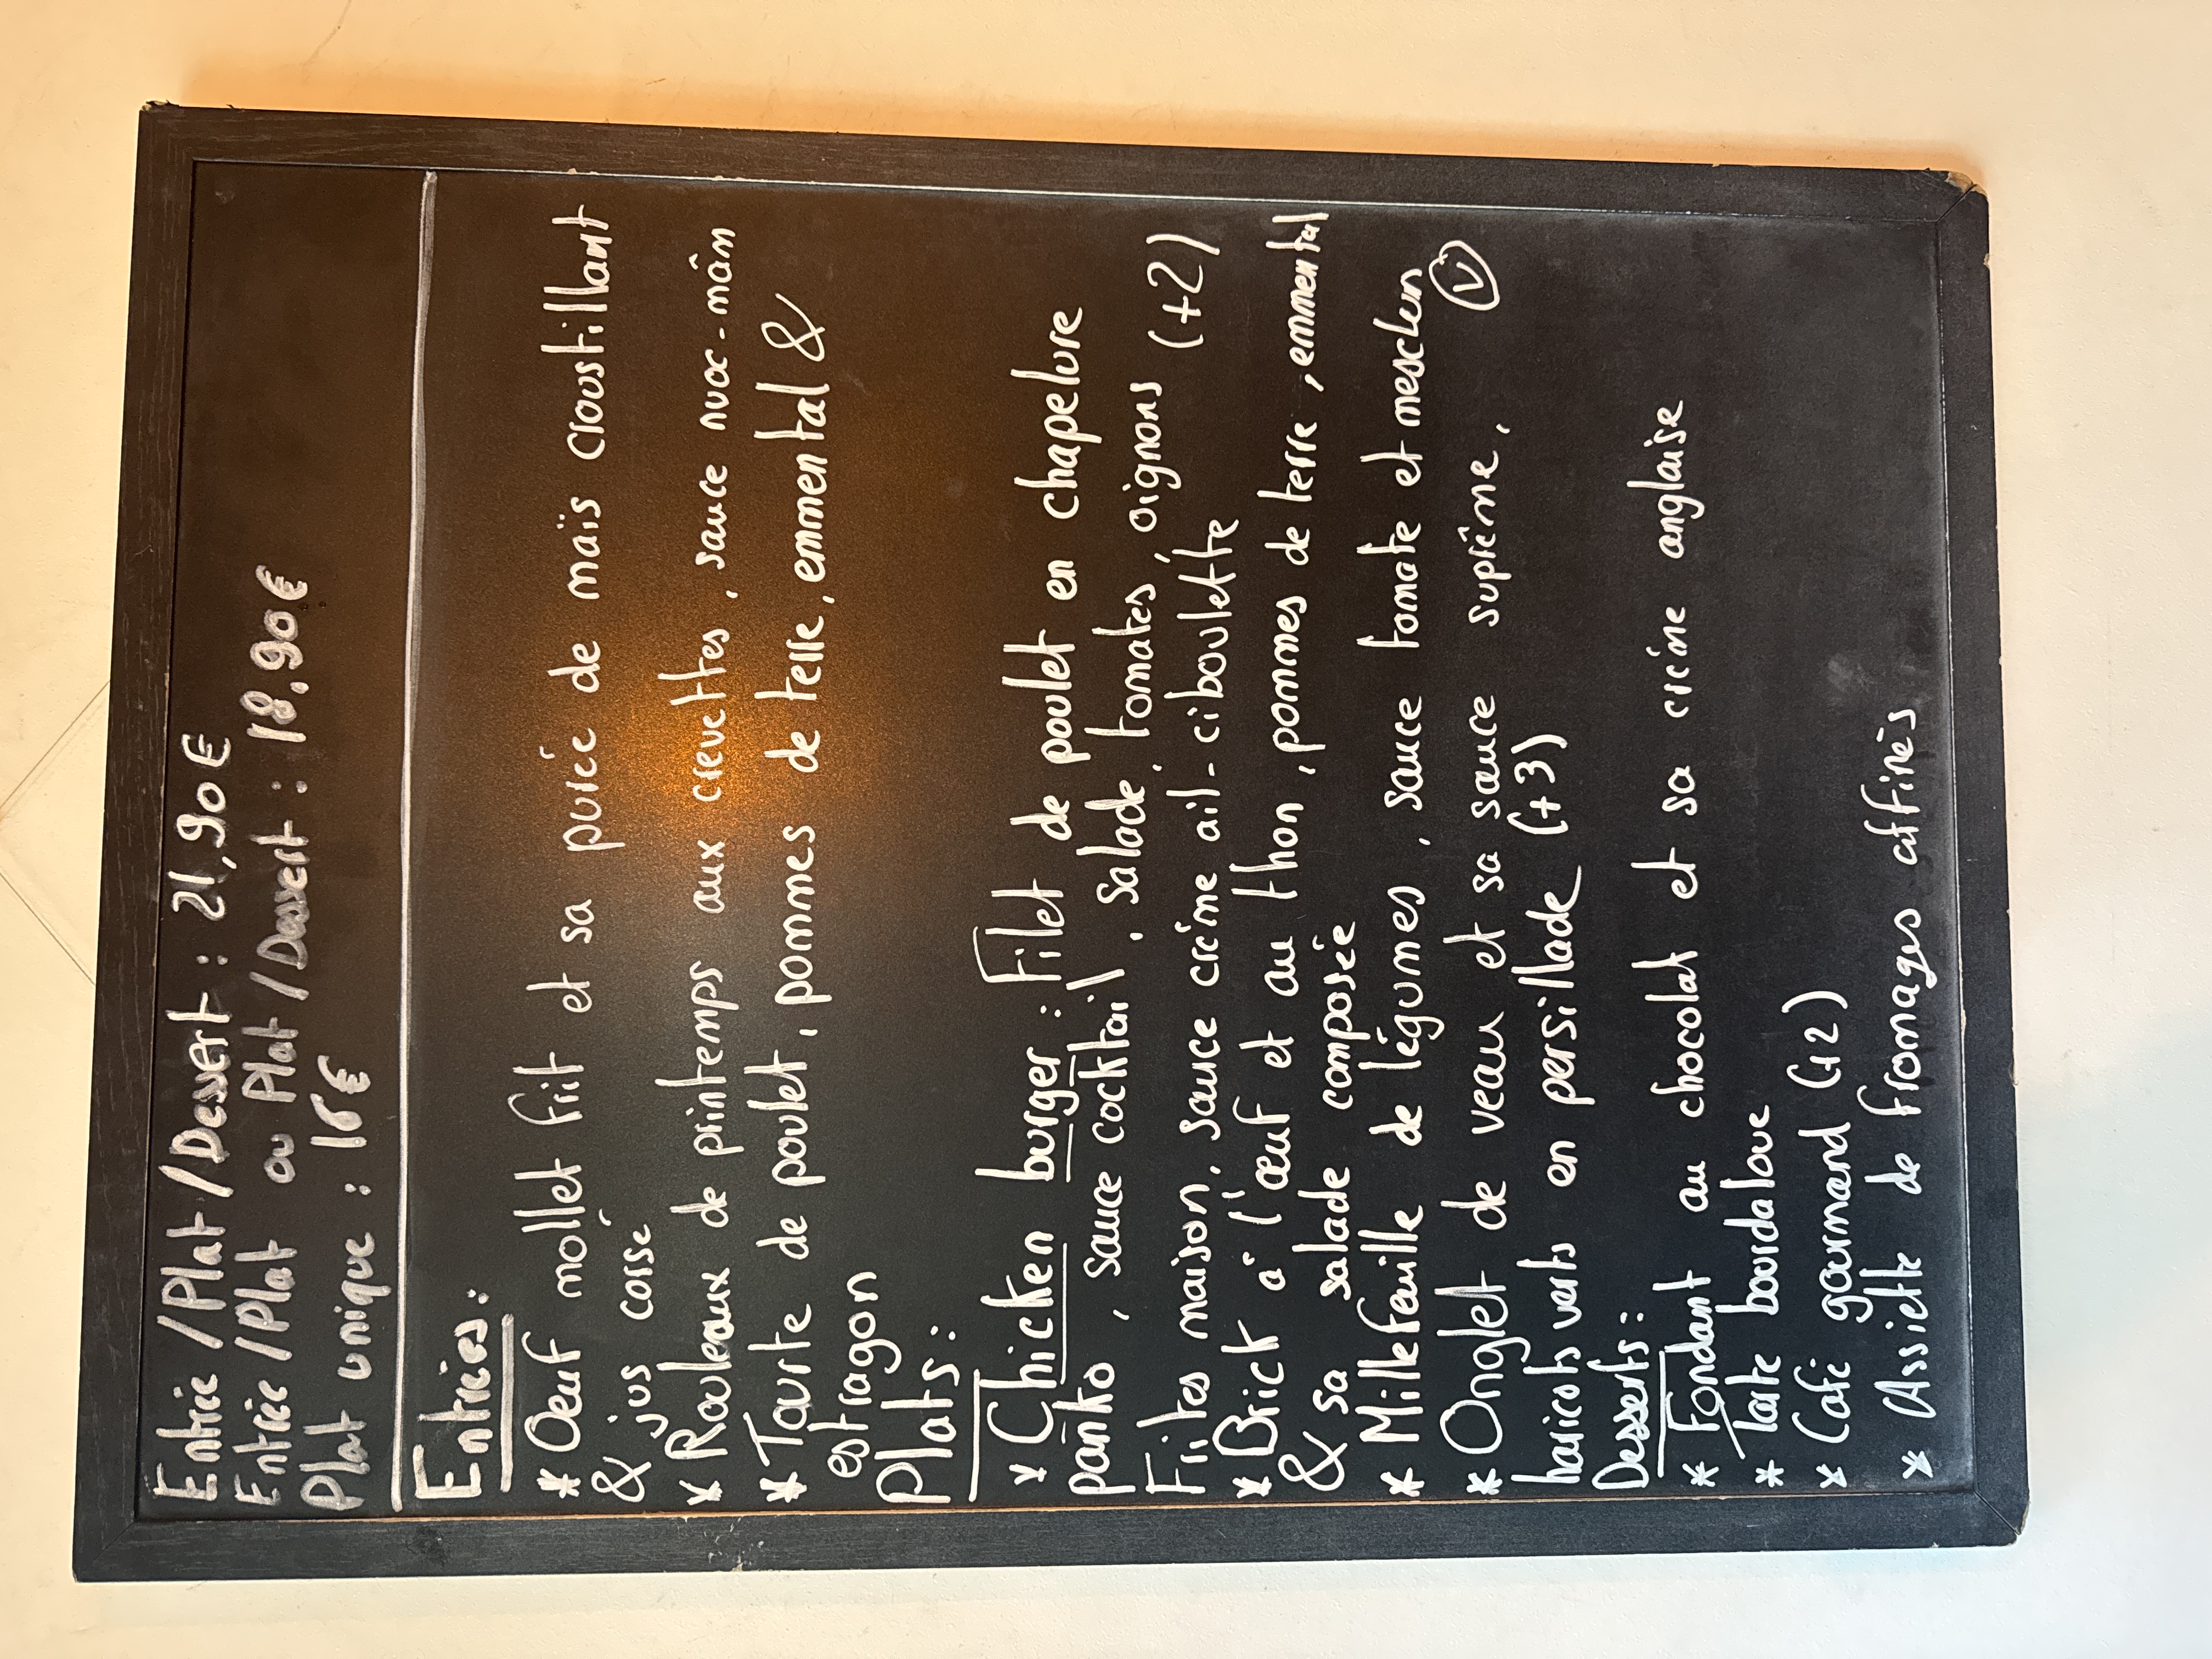 Entrée/Plat/Dessert : 21,90€
Entrée/Plat ou Plat/Dessert : 18,90€
Plat unique : 16€
Entrées :
* Oeuf mollet frit et sa purée de maïs croustillant
& jus corsé
* Rouleaux de printemps aux crevettes, sauce nuoc-mâm
* Tourte de poulet, pommes de terre, emmental &
estragon
Plats :
* Chicken burger : Filet de poulet en chapelure
panko, sauce cocktail, salade, tomates, oignons (+2)
Frites maison, sauce crème ail-ciboulette
* Brick à l'œuf et au thon, pommes de terre, emmental
& sa salade composée
* Millefeuille de légumes, sauce tomate et mesclun Ⓥ
* Onglet de veau et sa sauce suprême,
haricots verts en persillade (+3)
Desserts :
* Fondant au chocolat et sa crème anglaise
* Tarte bourdaloue
* Café gourmand (+2)
* Assiette de fromages affinés